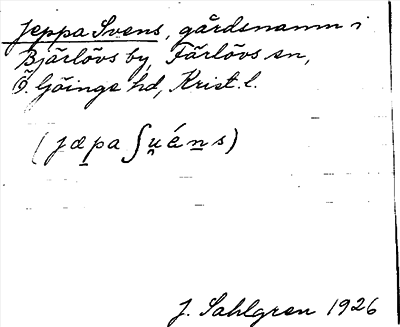 Jeppa Svens, gårdsnamn i
Bjärlövs by, Färlövs sn,
Ö. Göinge hd, Krist. l.
(jæpa ʃu̯éns)
J. Sahlgren 1926